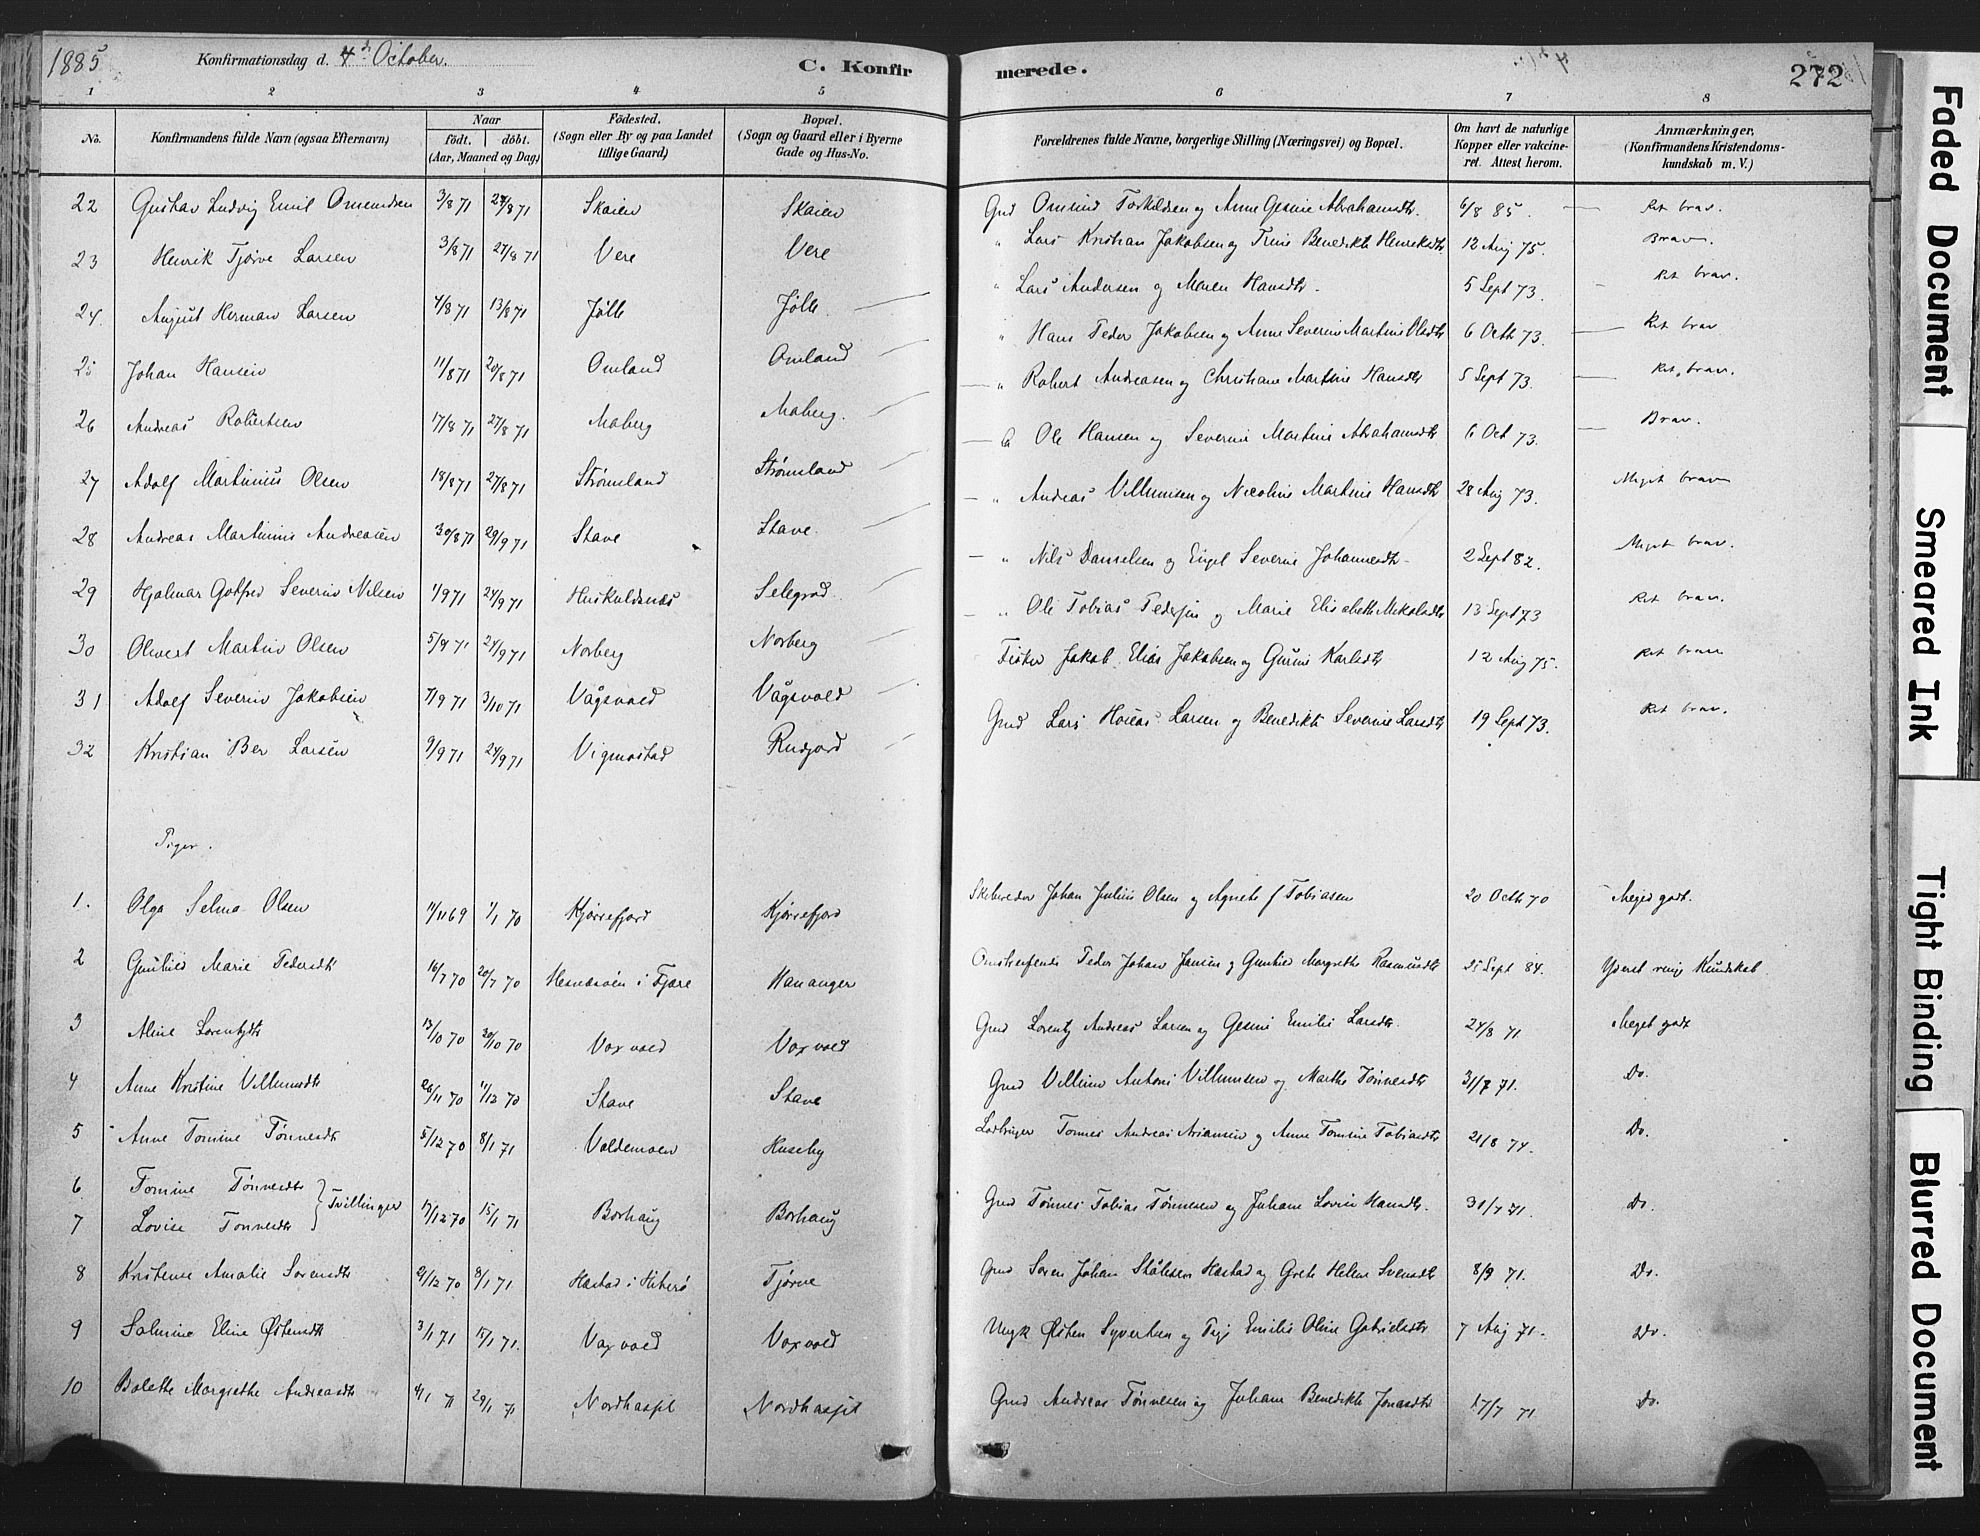 1885
Konfirmationsdag d. 4de October.
C. Konfirmerede.
272
1 2 3 4 5 6 7 8
No.
Konfirmandens fulde Navn (ogsaa Efternavn)
Naar
födt. | döbt.
(Aar, Maaned og Dag)
Födested.
(Sogn eller By og paa Landet
tillige Gaard)
Bopæl.
(Sogn og Gaard eller i Byerne
Gade og Hus-No.
Forældrenes fulde Navne, borgerlige Stilling (Næringsvei) og Bopæl.
Om havt de naturlige
Kopper eller vakcine-
ret. Attest herom.
Anmærkninger,
(Konfirmandens Kristendoms-
kundskab m. V.)
22 Gustav Ludvig Emil Omundsen 3/8 71 27/8 71 Skaien Skaien Gmd Omund Torkildsen og Anne Gesine Abrahamsdtr. 6/8 85. Ret brav.
23 Henrik Tjørve Larsen 3/8 71 27/8 71 Vere Vere " Lars Kristian Jakobsen og Trine Benedikte Henriksdtr 12 Aug 75. Brav.
24. August Herman Larsen 4/8 71 13/8 71 Jølle Jølle " Lars Andersen og Maren Hansdtr. 5 Sept 73. Ret brav.
25 Johan Hansen 11/8 71 20/8 71 Omland Omland " Hans Peder Jakobsen og Anne Severine Martine Olsdtr 6 Octb 73. Ret brav
26 Andreas Robertsen 17/8 71 27/8 71 Maberg Maberg. " Robert Andreasen og Christiane Martine Hansdtr 5 Sept 73. Ret brav.
27 Adolf Martinius Olsen 18/8 71 27/8 71 Strømland Strømland Ole Hansen og Severine Martine Abrahamsdtr 6 Oct 73. Brav.
28 Andreas Martinius Andreasen 30/8 71 29/9 71 Stave Stave. " Andreas Villumsen og Nicoline Martine Hansdtr 28 Aug 73. Meget brav
29 Hjalmar Gotfred Severin Nilsen 1/9 71 24/9 71 Huskuldsnæs Selegrød " Nils Danielsen og Engel Severine Johannesdtr 2 Sept 82. Meget brav.
30 Olvert Martin Olsen 5/9 71 24/9 71 Norberg Norberg " Ole Tobias Pedersen og Marie Elisabeth Mikalsdtr 13 Sept 73 Ret brav.
31 Adolf Severin Jakobsen 7/9 71 3/10 71 Vågsvold Vågsvold Fisker Jakob Elias Jakobsen og Gurine Karlsdtr 12 Aug 75. Ret brav
32 Kristian Ber Larsen 9/9 71 24/9 71 Vigmostad Rudjord Gmd Lars Hoseas Larsen og Benedikte Severine Larsdtr 19 Sept 73. Ret brav.
Piger.
1. Olga Selma Olsen 11/11 69 1/1 70 Kjørrefjord Kjørrefjord Skibsreder Johan Julius Olsen og Agnete f Tobiasen 20 Octb 70 Meget godt.
2 Gunhild Marie Pedersdtr 16/7 70 20/7 70 Hesnesøen i Fjære Hananger Omstreifende Peder Johan Jensen og Gunhild Margrethe Rasmusdtr 25 Sept 84. Yderst ringe Kundskab
3 Aline Lorentzdtr 13/10 70 30/10 70 Voxvold Voxvold Gmd Lorentz Andreas Larsen og Gesine Emilie Larsdtr. 24/8 71. Meget godt
4 Anne Kristine Villumsdtr 26/11 70 11/12 70 Stave Stave Gmd Villum Antoni Villumsen og Marthe Tønnesdtr 31/7 71. Do.
5 Anne Tomine Tønnesdtr 5/12 70 8/1 71 Voldemoen Huseby Tonnes Andreas Ariansen og Anne Tomine Tobiasdtr 21/8 74. Do.
6 Tomine Tønnesdtr } Tvillinger 17/12 70 15/1 71 Borhaug Borhaug Gmd Tønnes Tobias Tønnesen og Juhane Lovise Hansdtr. 31/7 71. Do.
7 Lovise Tonnesdtr
8 Kristense Amalie Sorensdtr 21/12 70 8/1 71 Hastad i Hiterø Tjørve Gmd Soren Johan Ståleson Hastad og Grete Helene Svensdtr 8/9 71. Do.
9 Salmine Eline Østensdtr 3/1 71 15/1 71. Voxvold Voxvold Ungk Østen Syvertsen og Pige Emilie Oline Gabrielsdtr 7 Aug 71. Do.
10 Bolette Margrethe Andreasdtr 4/1 71 29/1 71 Nordhassel Nordhassel Gmd Andreas Tønnesen og Juhane Benedikte Jonasdtr 17/7 71 Do.
Faded Document
Smeared Ink
Tight Binding
Blurred Document